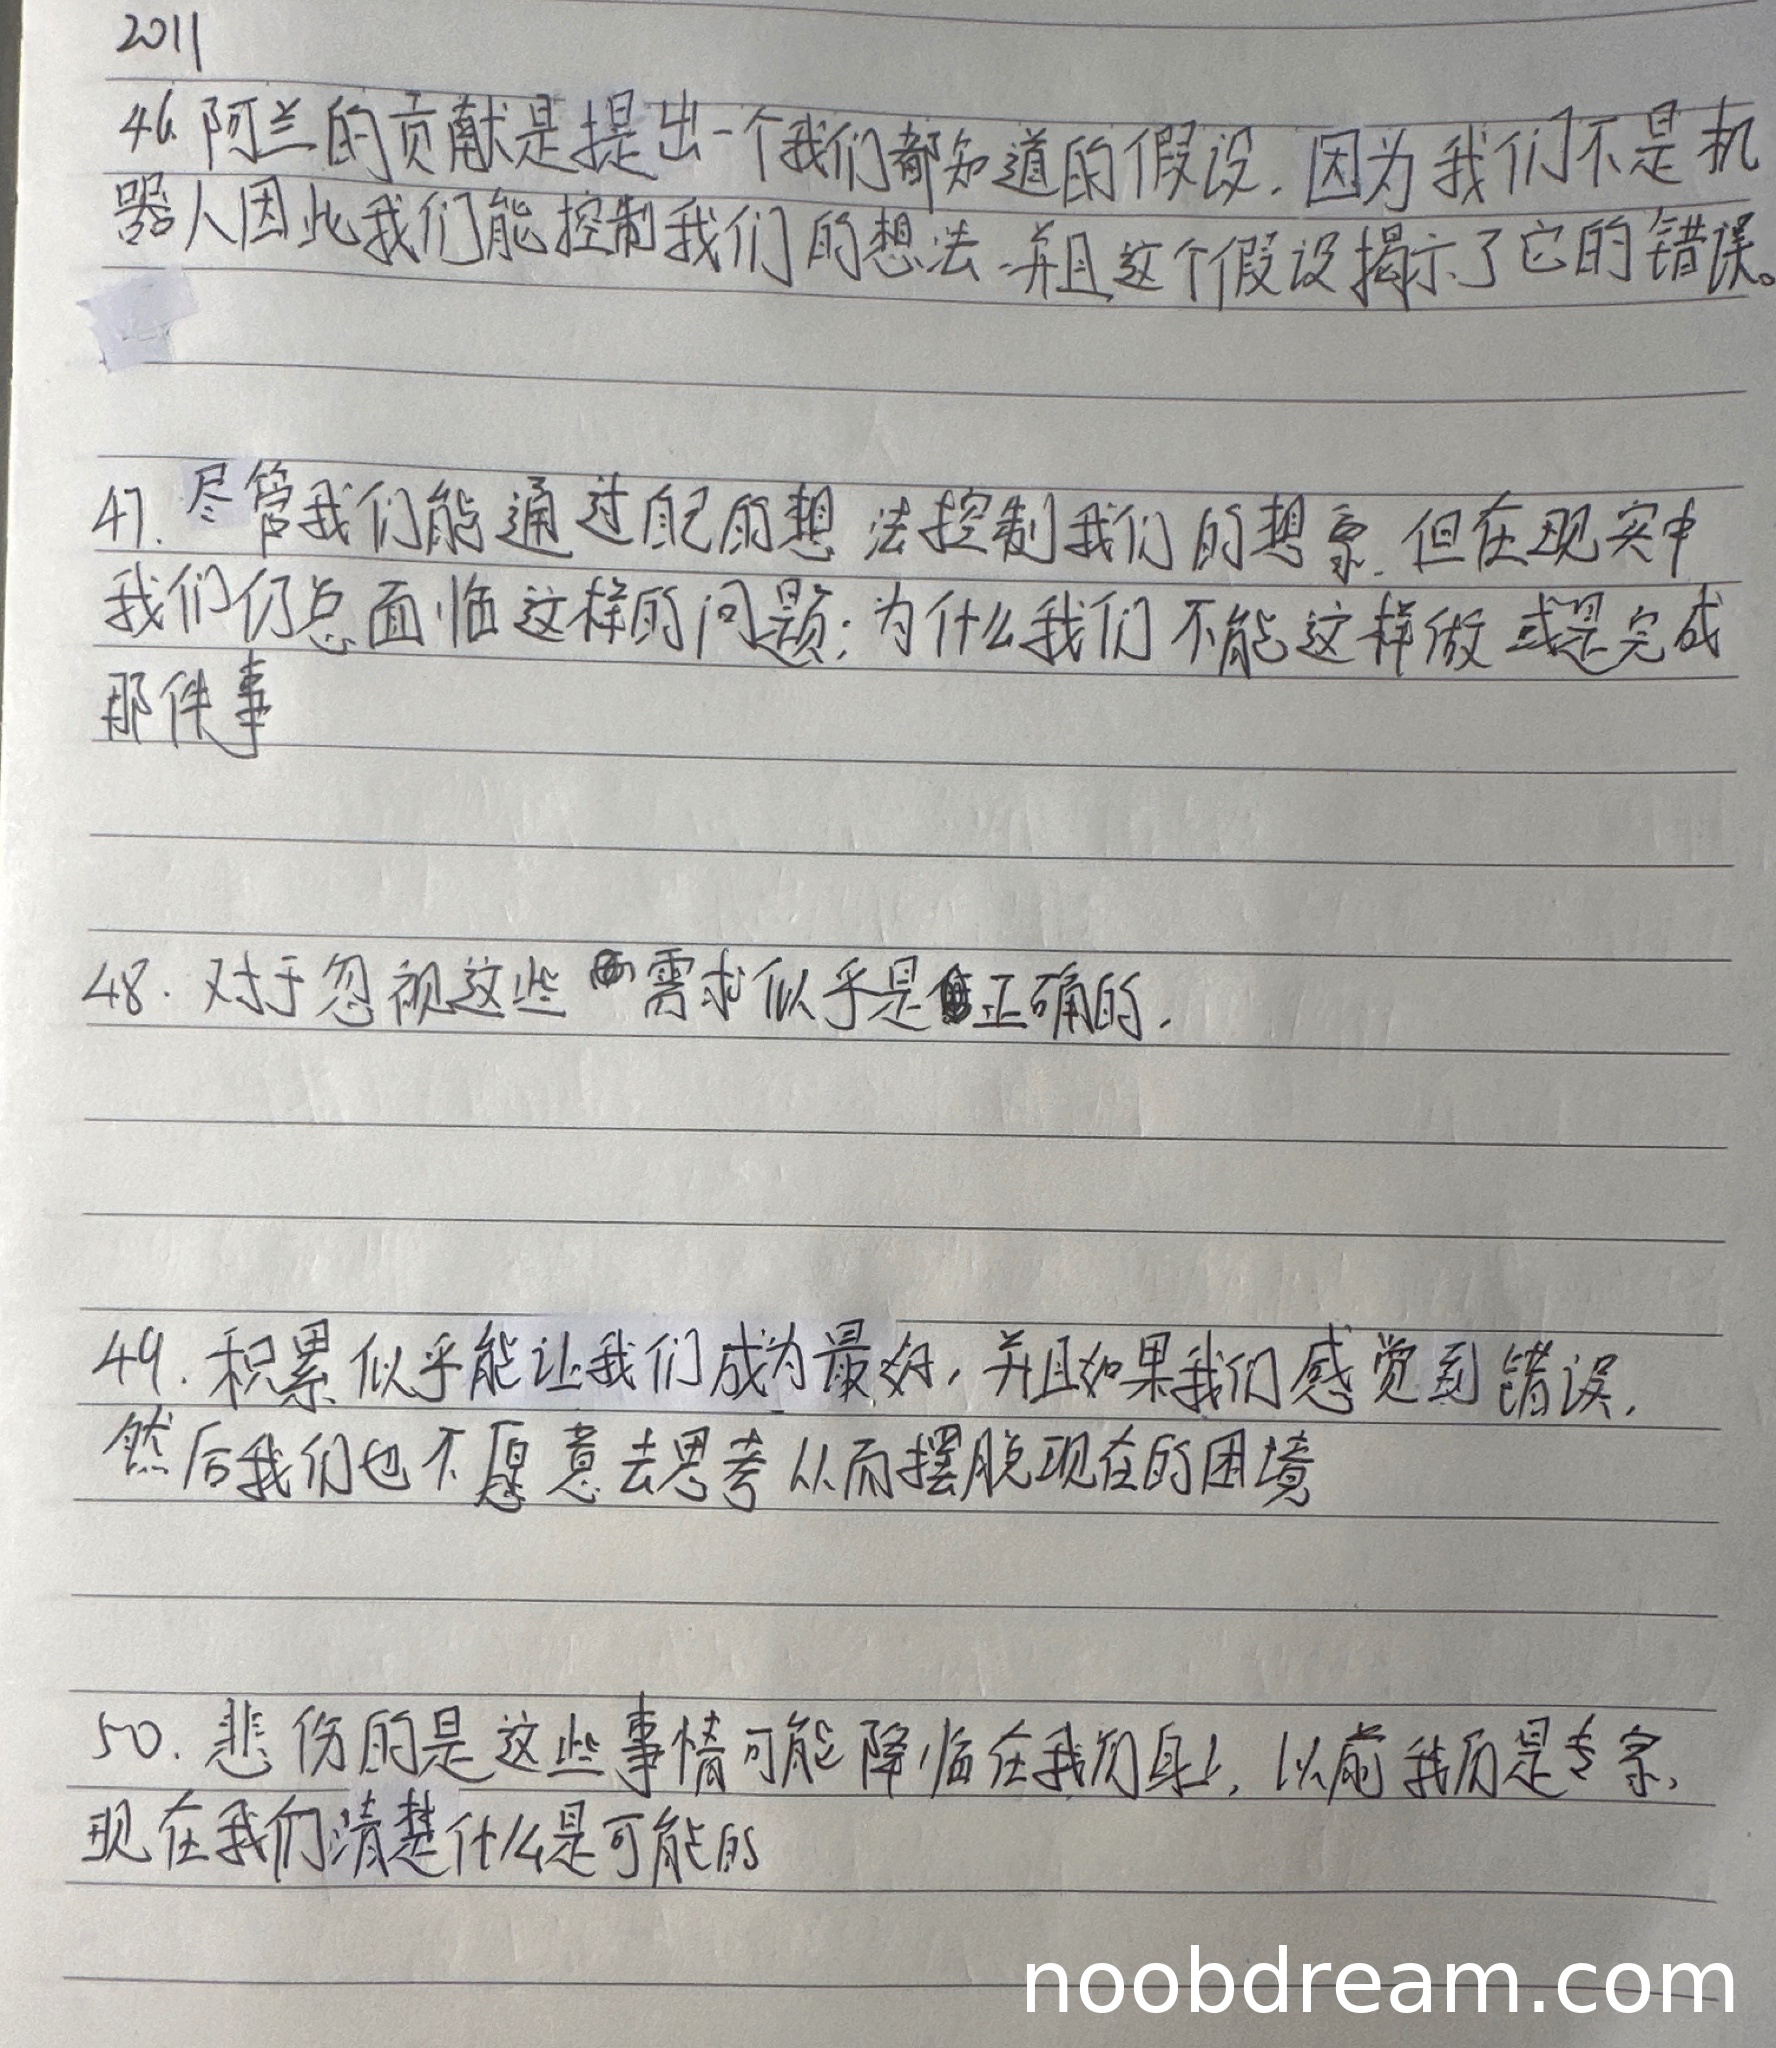 2011
46. 阿兰的贡献是提出一个我们都知道的假设,因为我们不是机
器人因此我们能控制我们的想法,并且这个假设揭示了它的错误。
47. 尽管我们能通过自己的想法控制我们的想象,但在现实中
我们仍总面临这样的问题:为什么我们不能这样做或是完成
那件事
48. 对于忽视这些需求似乎是正确的.
49. 积累似乎能让我们成为最好,并且如果我们感觉到错误,
然后我们也不愿意去思考从而摆脱现在的困境
50. 悲伤的是这些事情可能降临在我们身上,以前我们是专家,
现在我们清楚什么是可能的
noobdream.com